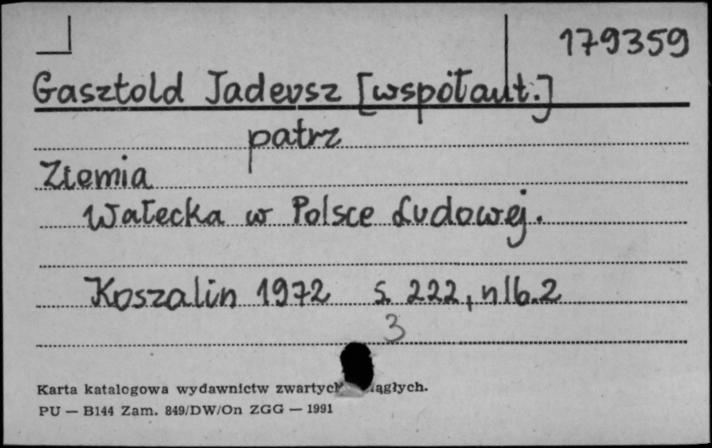 179359
Gasztold Tadeusz [współaut.]
patrz
Ziemia
Wałecka w Polsce Ludowej.
Koszalin 1972 s. 222, nlb. 2
3
Karta katalogowa wydawnictw zwartych ągłych.
PU — B144 Zam. 849/DW/On ZGG — 1991